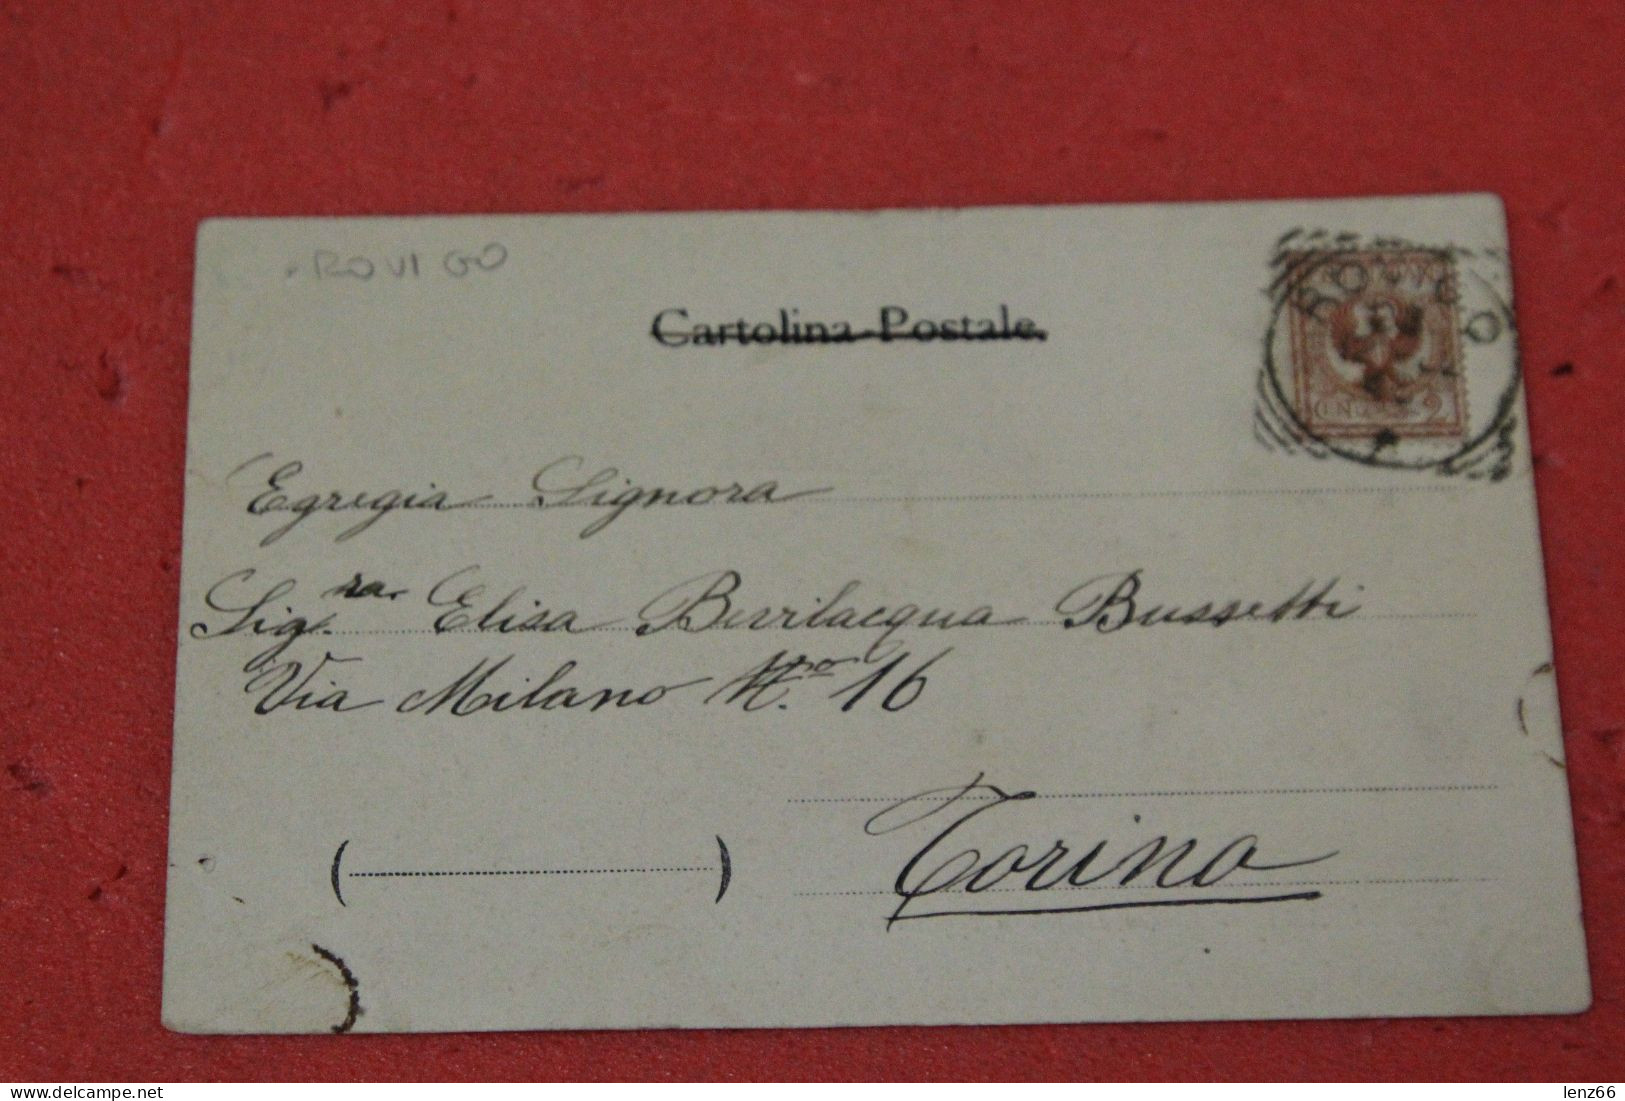 ROVIGO
Cartolina Postale.
ROVIGO
2
Egregia Signora
Sig.ra Elisa Bevilacqua Bussetti
Via Milano N.ro 16
Torino
(                    )
delcampe.net
lenz66